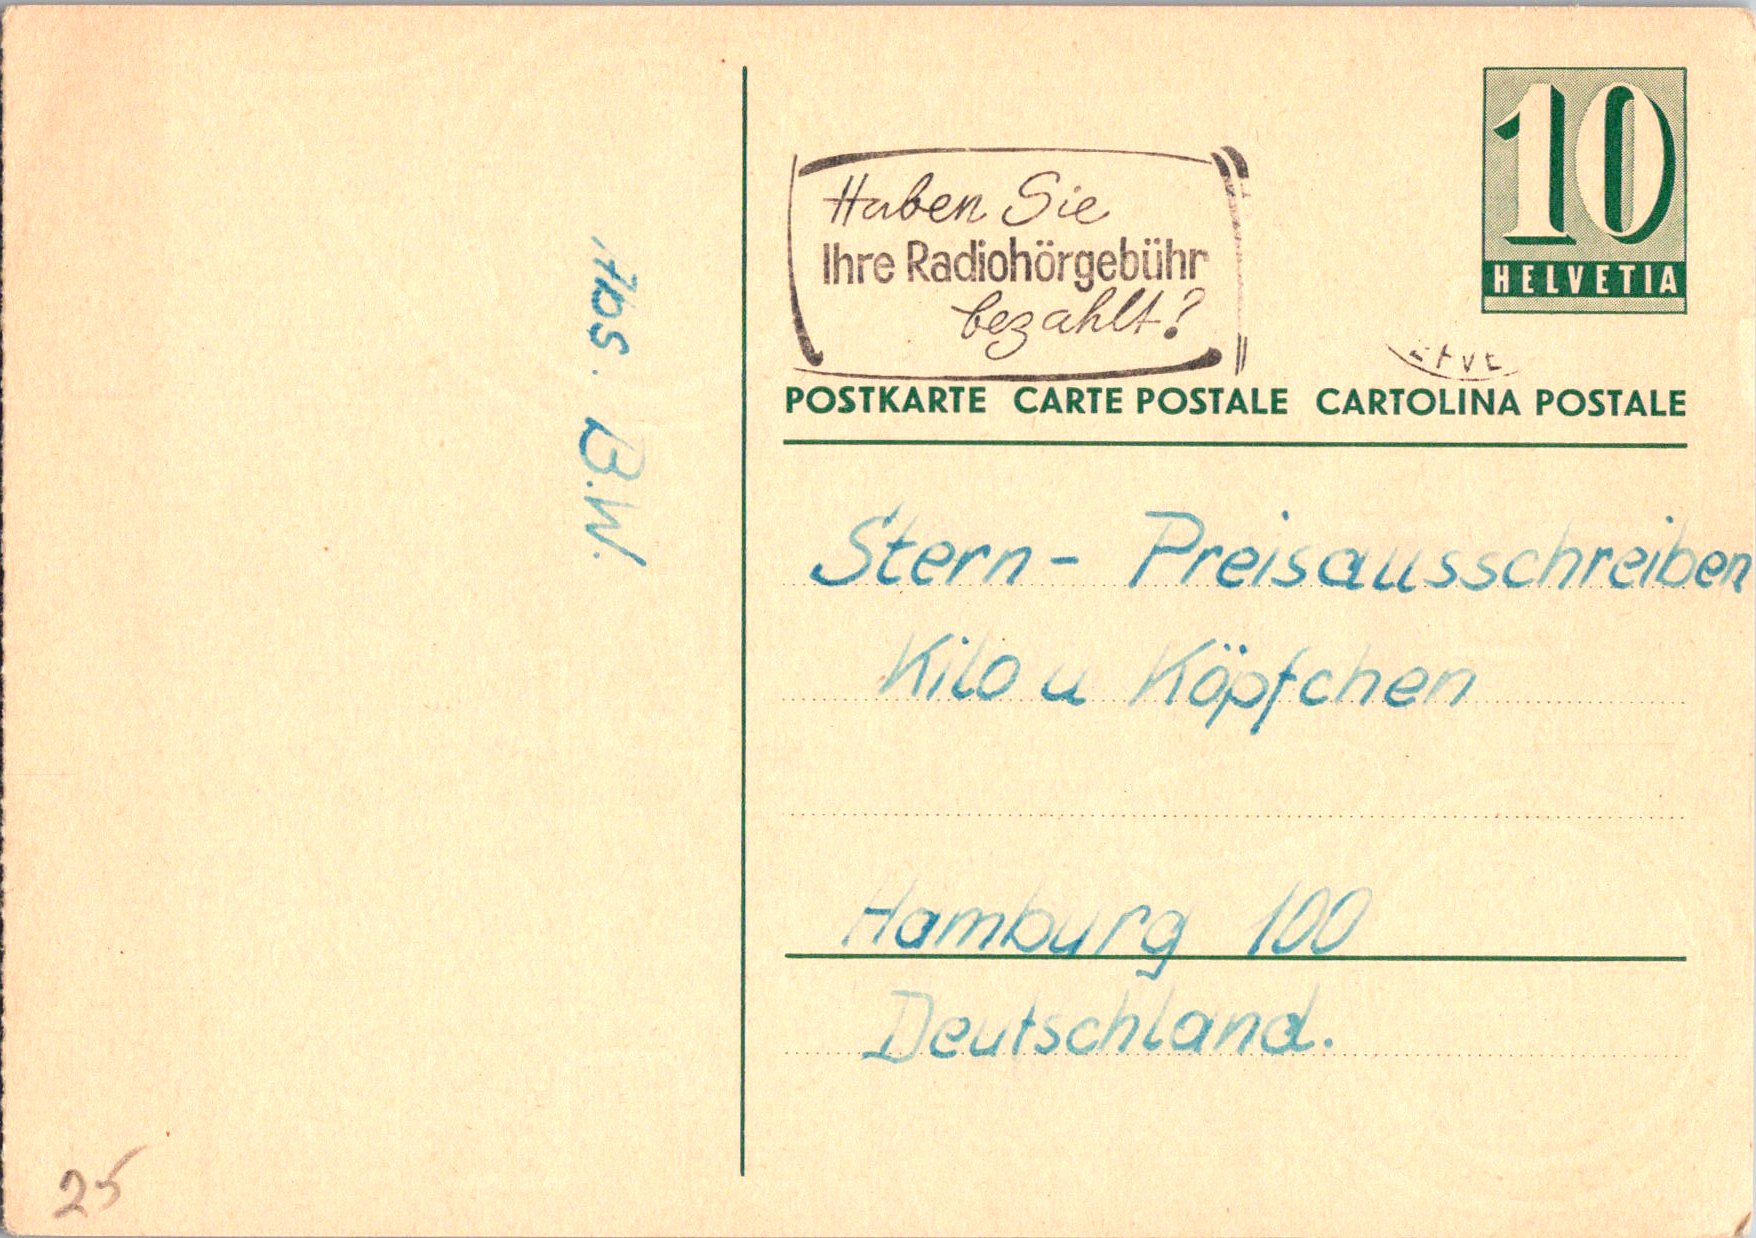 10
HELVETIA
Haben Sie
Ihre Radiohörgebühr
bezahlt?
POSTKARTE CARTE POSTALE CARTOLINA POSTALE
Abs. B.W.
Stern- Preisausschreiben
Kilo u Köpfchen
Hamburg 100
Deutschland.
25